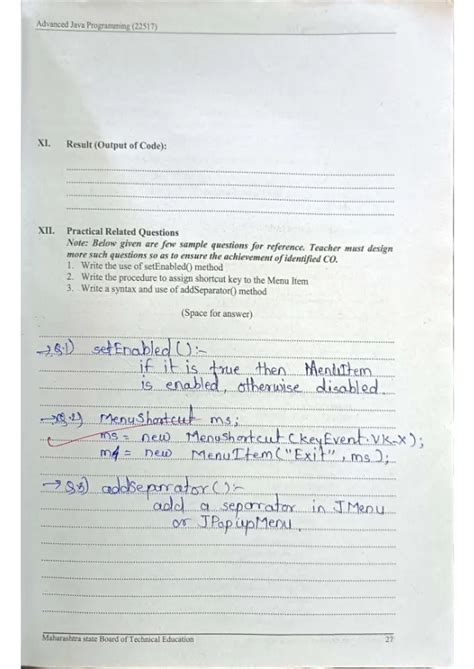 Advanced Java Programming (22517)
XI. Result (Output of Code):
XII. Practical Related Questions
Note: Below given are few sample questions for reference. Teacher must design
more such questions so as to ensure the achievement of identified CO.
1. Write the use of setEnabled() method
2. Write the procedure to assign shortcut key to the Menu Item
3. Write a syntax and use of addSeparator() method
(Space for answer)
→ Q.1) setEnabled():-
if it is true then MenuItem
is enabled, otherwise disabled.
→ Q.2) MenuShortcut ms;
ms = new Menushortcut (keyEvent.VK-X);
m4 = new MenuItem("Exit", ms);
→ Q.3) addSeparrator():-
add a separrator in JMenu
or JPopupMenu.
Maharashtra state Board of Technical Education 27